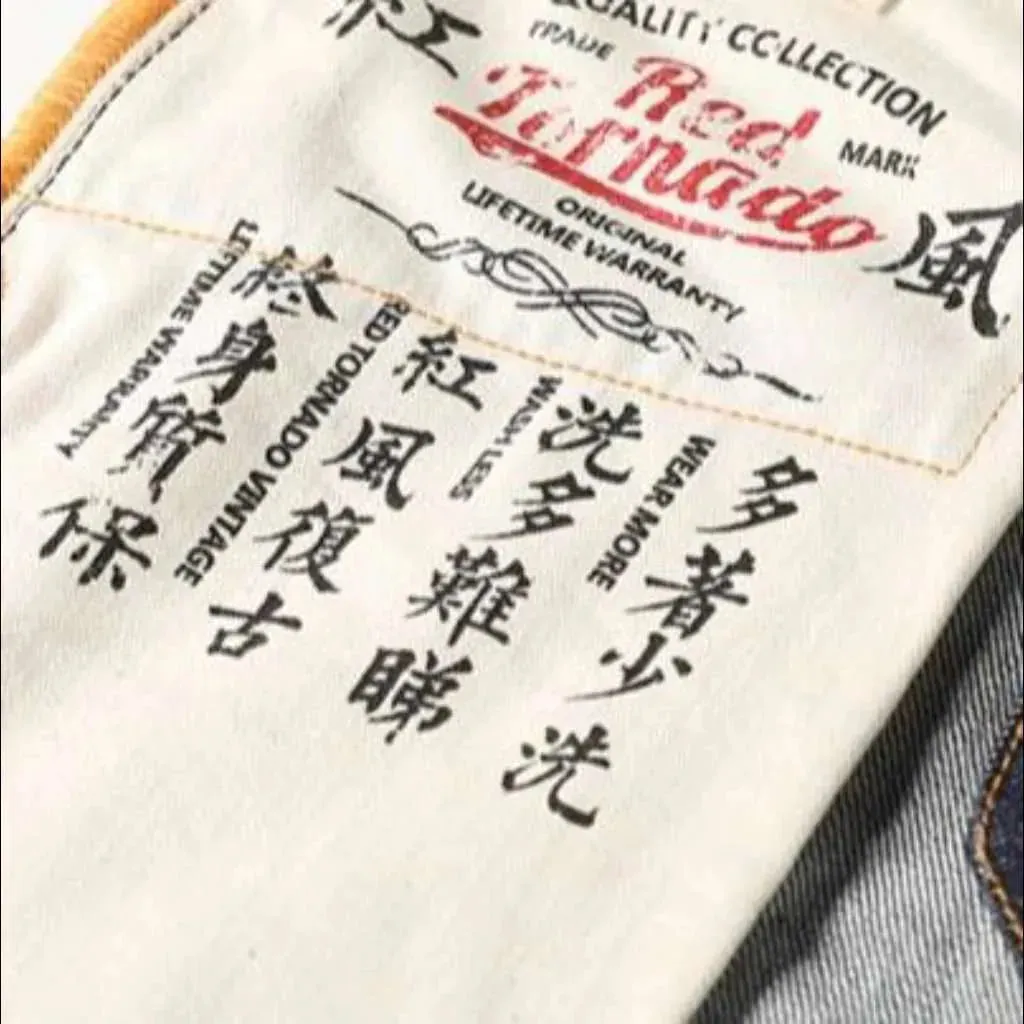 QUALITY COLLECTION
TRADE MARK
Red
Tornado
紅 風
ORIGINAL
LIFETIME WARRANTY
多著少洗
WEAR MORE
洗多難睇
WASH LESS
紅風復古
RED TORNADO VINTAGE
終身質保
LIFETIME WARRANTY